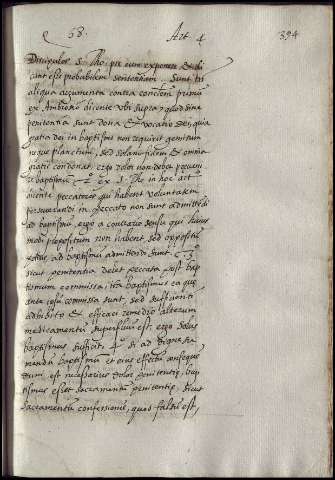 q 68. Art 4 394
Discipulos S. Tho. qui eum exponunt & di
cant esse probabilem sententiam. Sunt tñ
aliqua argumenta contra primum
ex Ambrosio dicente ubi supra, quod sine
penitentia sunt dona & vocatio dei, quia
gratia dei in baptismo non requirit gemitum
neque planctum, sed solam fidem & omnia
gratis condonat, ergo dolor non debet
baptismum. 2º ex S. Tho. in hoc art.º
dicente peccatores qui habent voluntatem
perseverandi in peccato non sunt admittẽdi
ad baptismũ, ergo a contrario sensu qui huius
modi propositum non habent, sed oppositũ
ad baptismum admittendi sunt. 3º
sicut penitentia delet peccata post bap
tismum commissa, ita baptismus ea que
ante ipsũ commissa sunt, sed sufficienti
adhibito & efficaci remedio alterum
medicamentũ superfluũ est, ergo solus
baptismus sufficit. 4º si ad digne
baptismũ et eius effectũ conseque
dum est necessarius dolor penitentie, bap
tismus esset sacramentũ penitentie, sicut
sacramentũ confessionis, quod falsũ est,